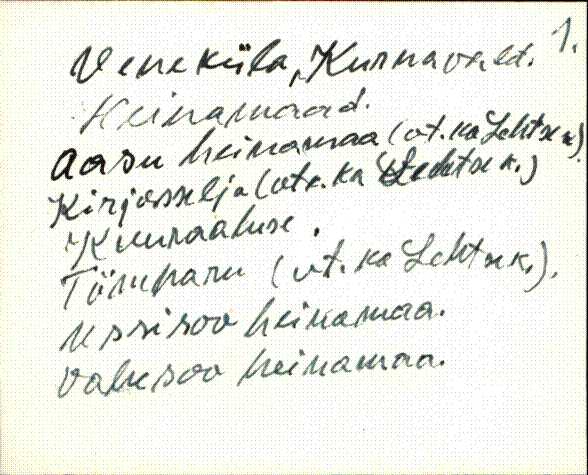 1.
Veneküla, Kurna vald.
Heinamaad.
Aasu heinamaa (vt. ka Lehtse k.)
Kirjasselja (vt. ka Lehtse k.)
Kuuraaluse.
(vt. ka Lehtse k.).
Ussisoo heinamaa.
Vahesoo heinamaa.